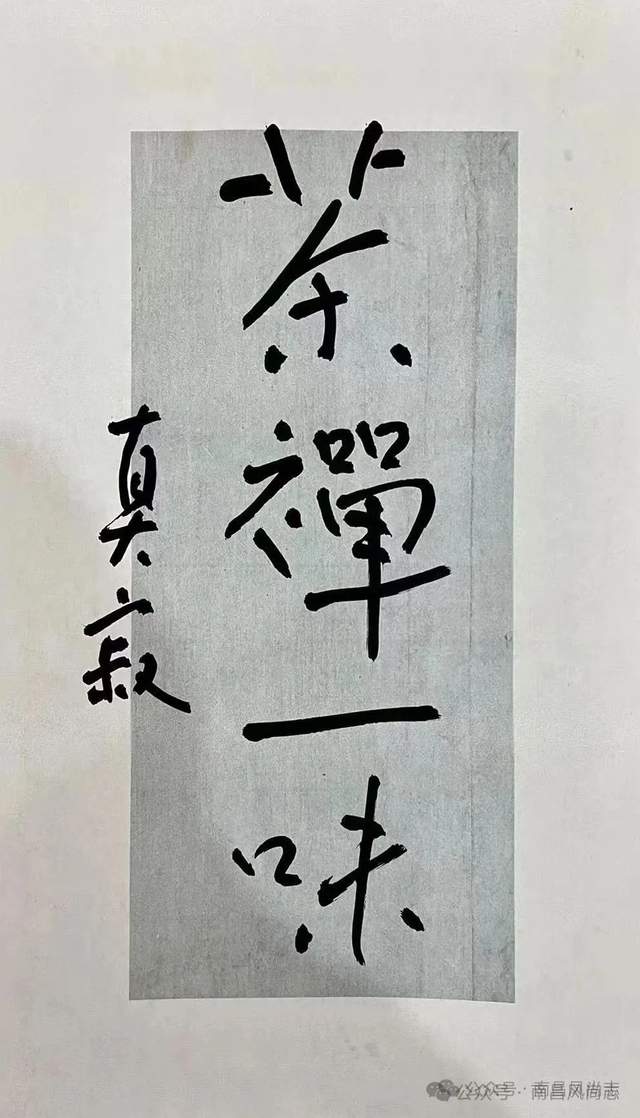 茶禪一味
真寂
公众号·南昌风尚志